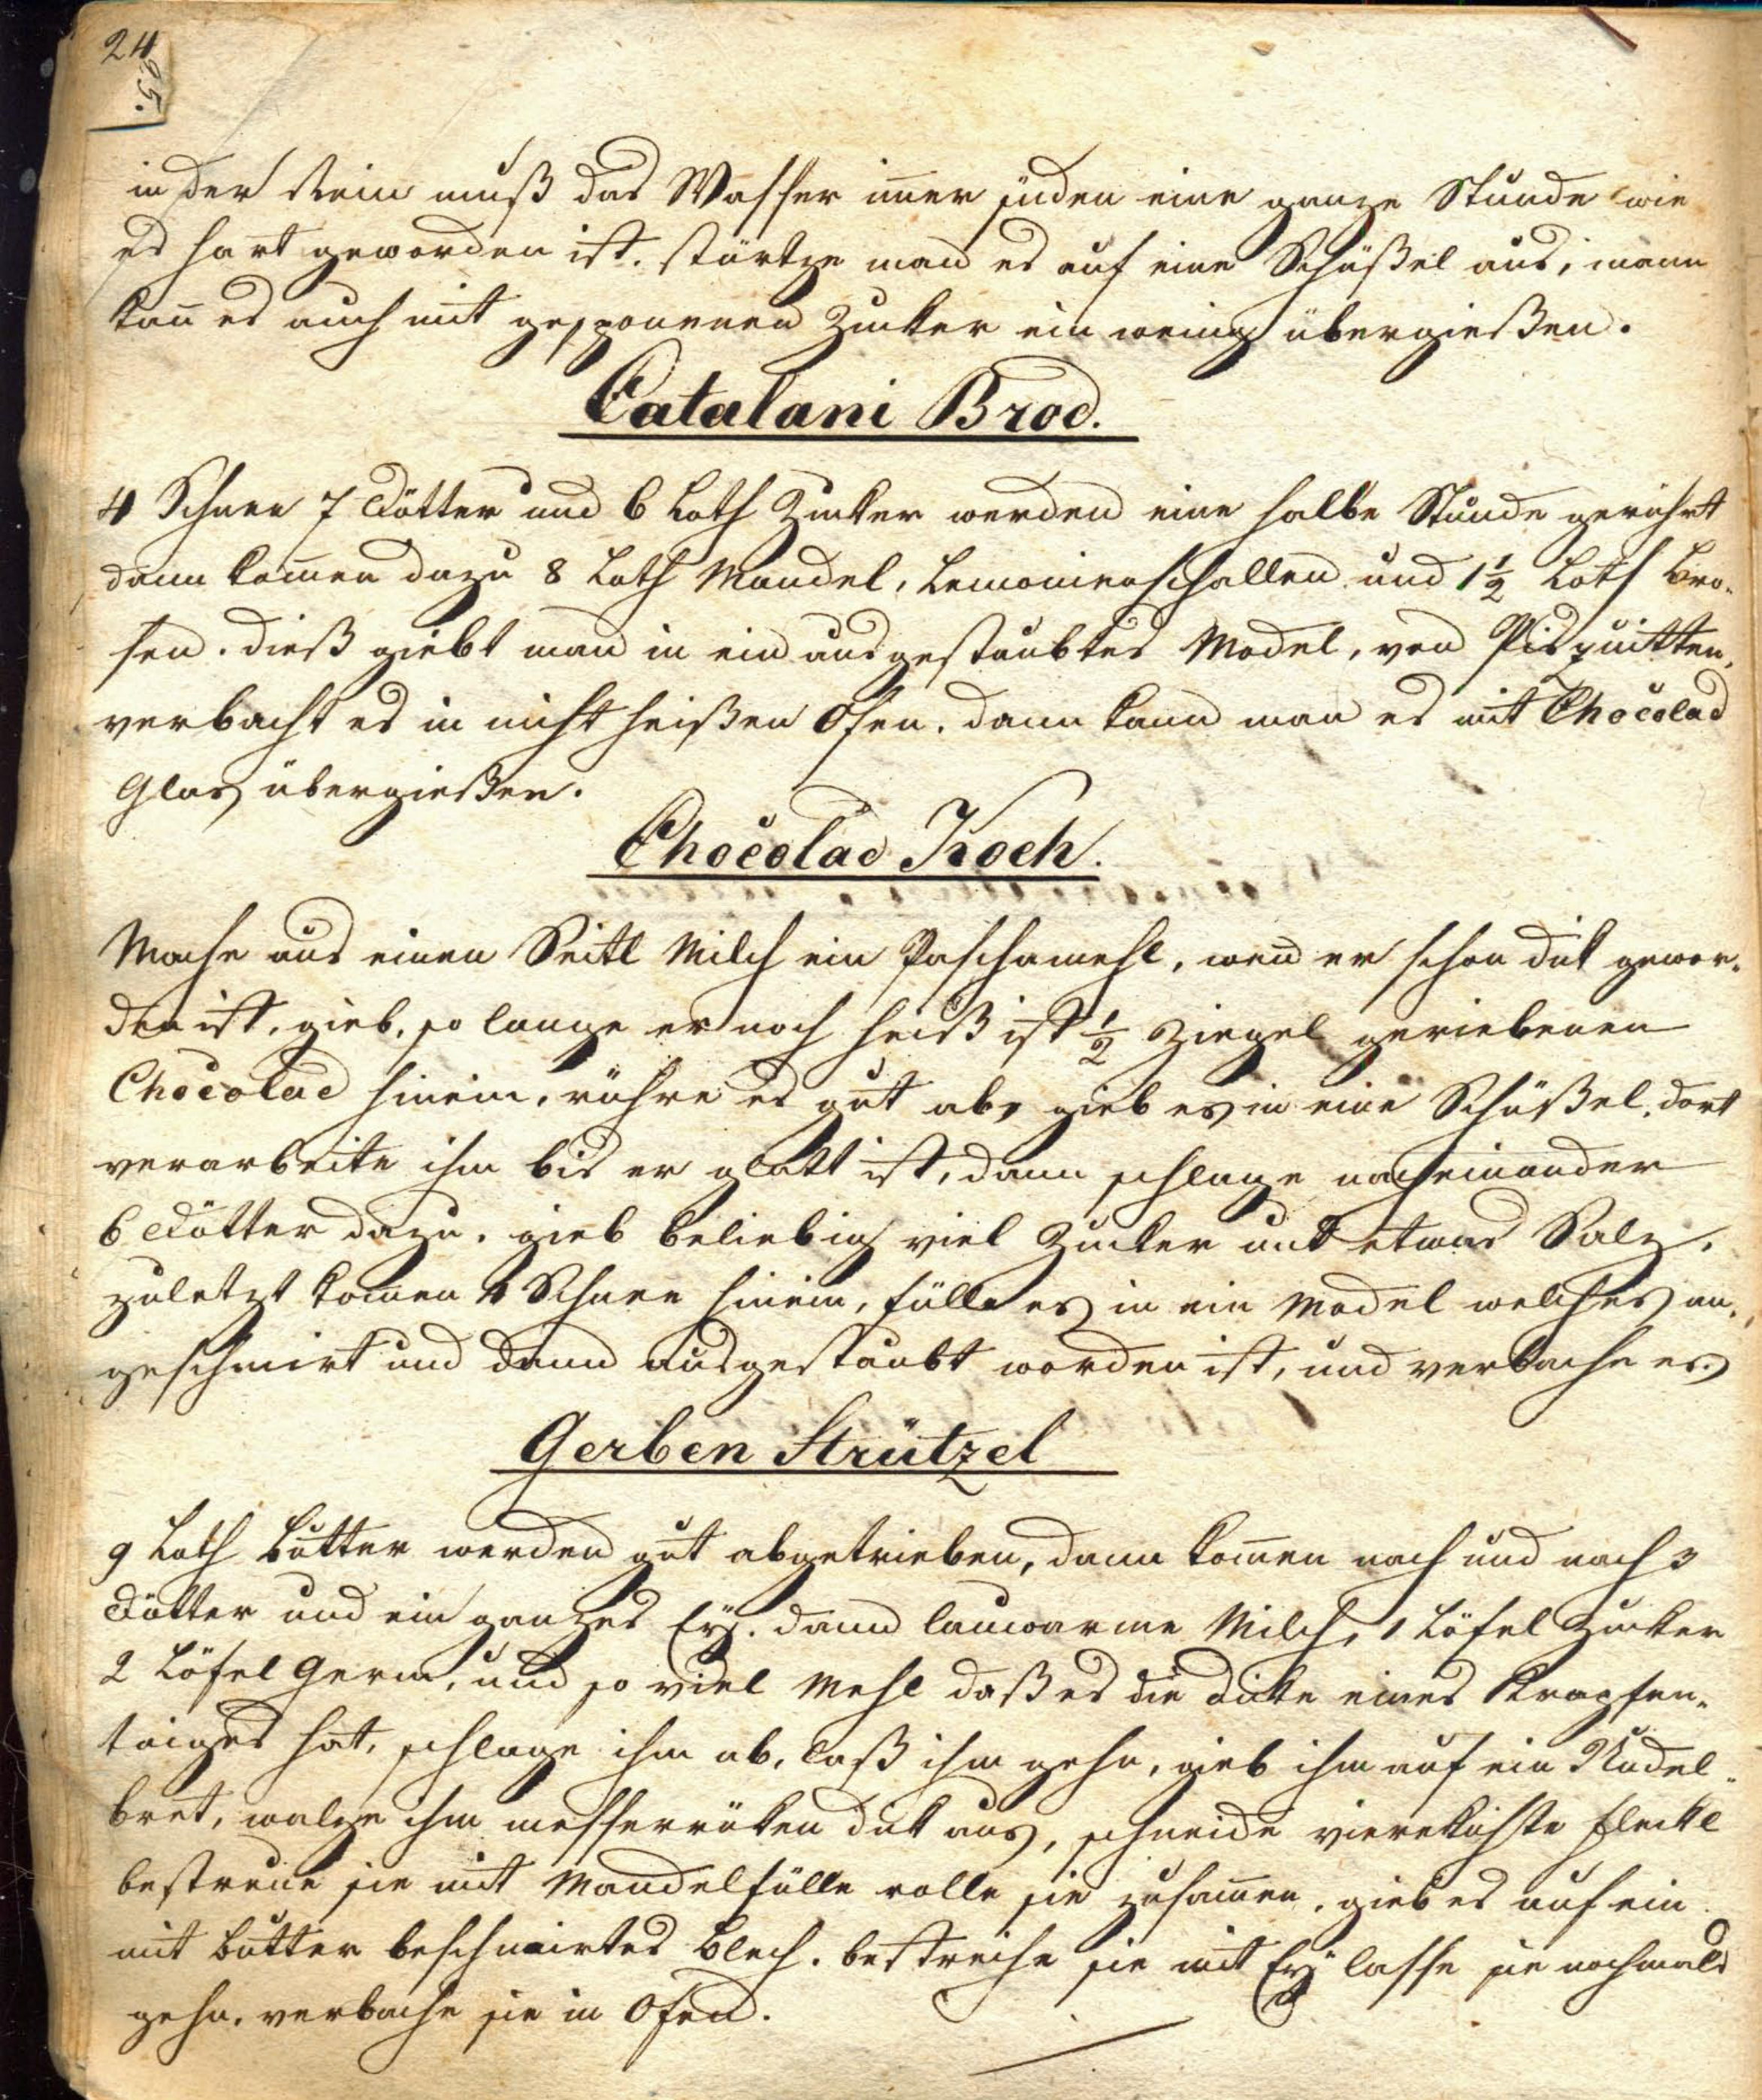 24
25.
in der Rein muß das Wasser im̄er süden eine ganze Stunde wie
es hart geworden ist. stürtze man es auf eine Schüßel aus, mann
kan̄ es auch mit gesponnenen Zucker ein wenig übergießen.
Catalani Brod.
4 Schnee 7 Dötter und 6 Loth Zucker werden eine halbe Stunde gerührt
dann kom̄en dazu 8 Loth Mandel, Lemonienschallen und 1½ Loth Brö-
sen. dieß giebt man in ein ausgestaubtes Model, von Pisquitten,
verbacht es in nicht heißen Ofen. dann kann man es mit Chocolad
Glas übergießen.
Chocolad Koch.
Mache aus einen Seitl Milch ein Paschamehl, wen̄ er schon dik gewor-
den ist, gieb, so lange er noch heiß ist ½ Ziegel geriebenen
Chocolad hinein, rühre es gut ab, gieb es in eine Schüßel, dort
verarbeite ihm bis er glatt ist, dann schlage nacheinander
6 Dötter dazu. gieb beliebig viel Zucker und etwas Salz,
zuletzt kom̄en 4 Schnee hinein, fülle es in ein Model welches an-
geschmirt und dann ausgestaubt worden ist, und verbache es.
Gerben Strützel
9 Loth Butter werden gut abgetrieben, dann kom̄en nach und nach 3
Dötter und ein ganzes Eÿ. dann lauwarme Milch, 1 Löfel Zucker
2 Löfel Germ, und so viel Mehl daß es die dicke eines Krapfen-
taiges hat, schlage ihm ab, laß ihm gehn, gieb ihm auf ein Nudel-
bret, walze ihm messerrüken dik aus, schneide viereckichte Fleckl
bestreue sie mit Mandelfülle rolle sie zusam̄en, gieb es auf ein
mit Butter beschmirtes Blech. bestreiche sie mit Eÿ lasse sie nochmals
gehn, verbache sie in Ofen.